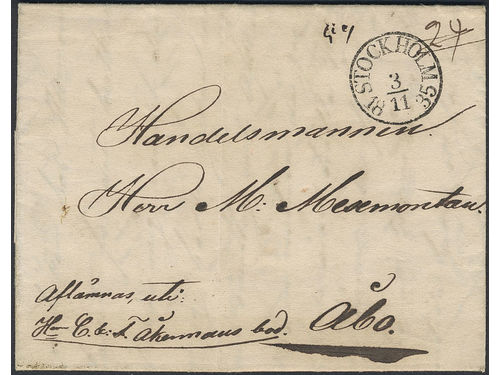 24
STOCKHOLM
3
11
18 35
Handelsmannen
Herr M: Mesemontan.
Aflämnas, uti:
Hrr C. & F. Åkermans bod.
Åbo.